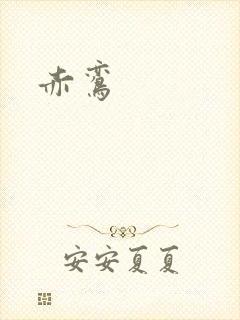 赤鸾
安安夏夏